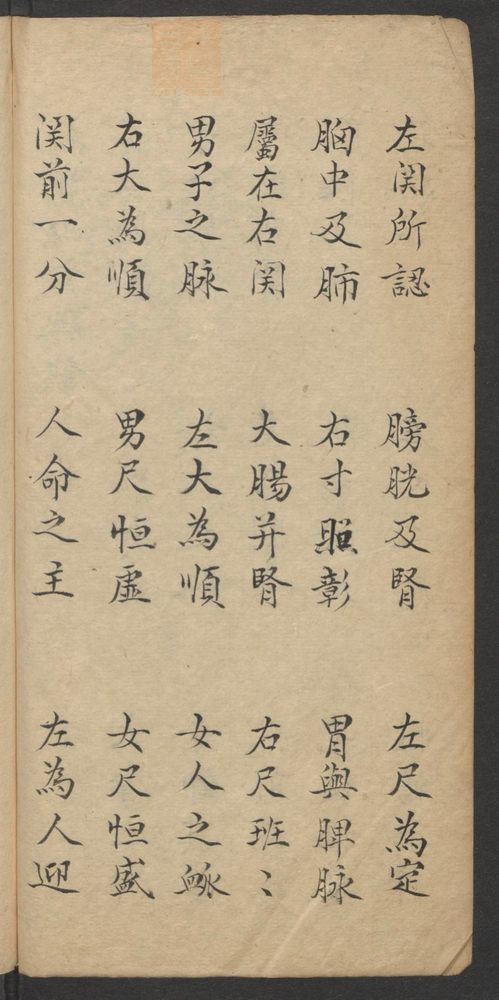 左関所認 膀胱及腎 左尺為定
胸中及肺 右寸照彰 胃與脾脉
屬在右関 大腸并腎 右尺班〻
男子之脉 左大為順 女人之䘑
右大為順 男尺恒虚 女尺恒盛
関前一分 人命之主 左為人迎